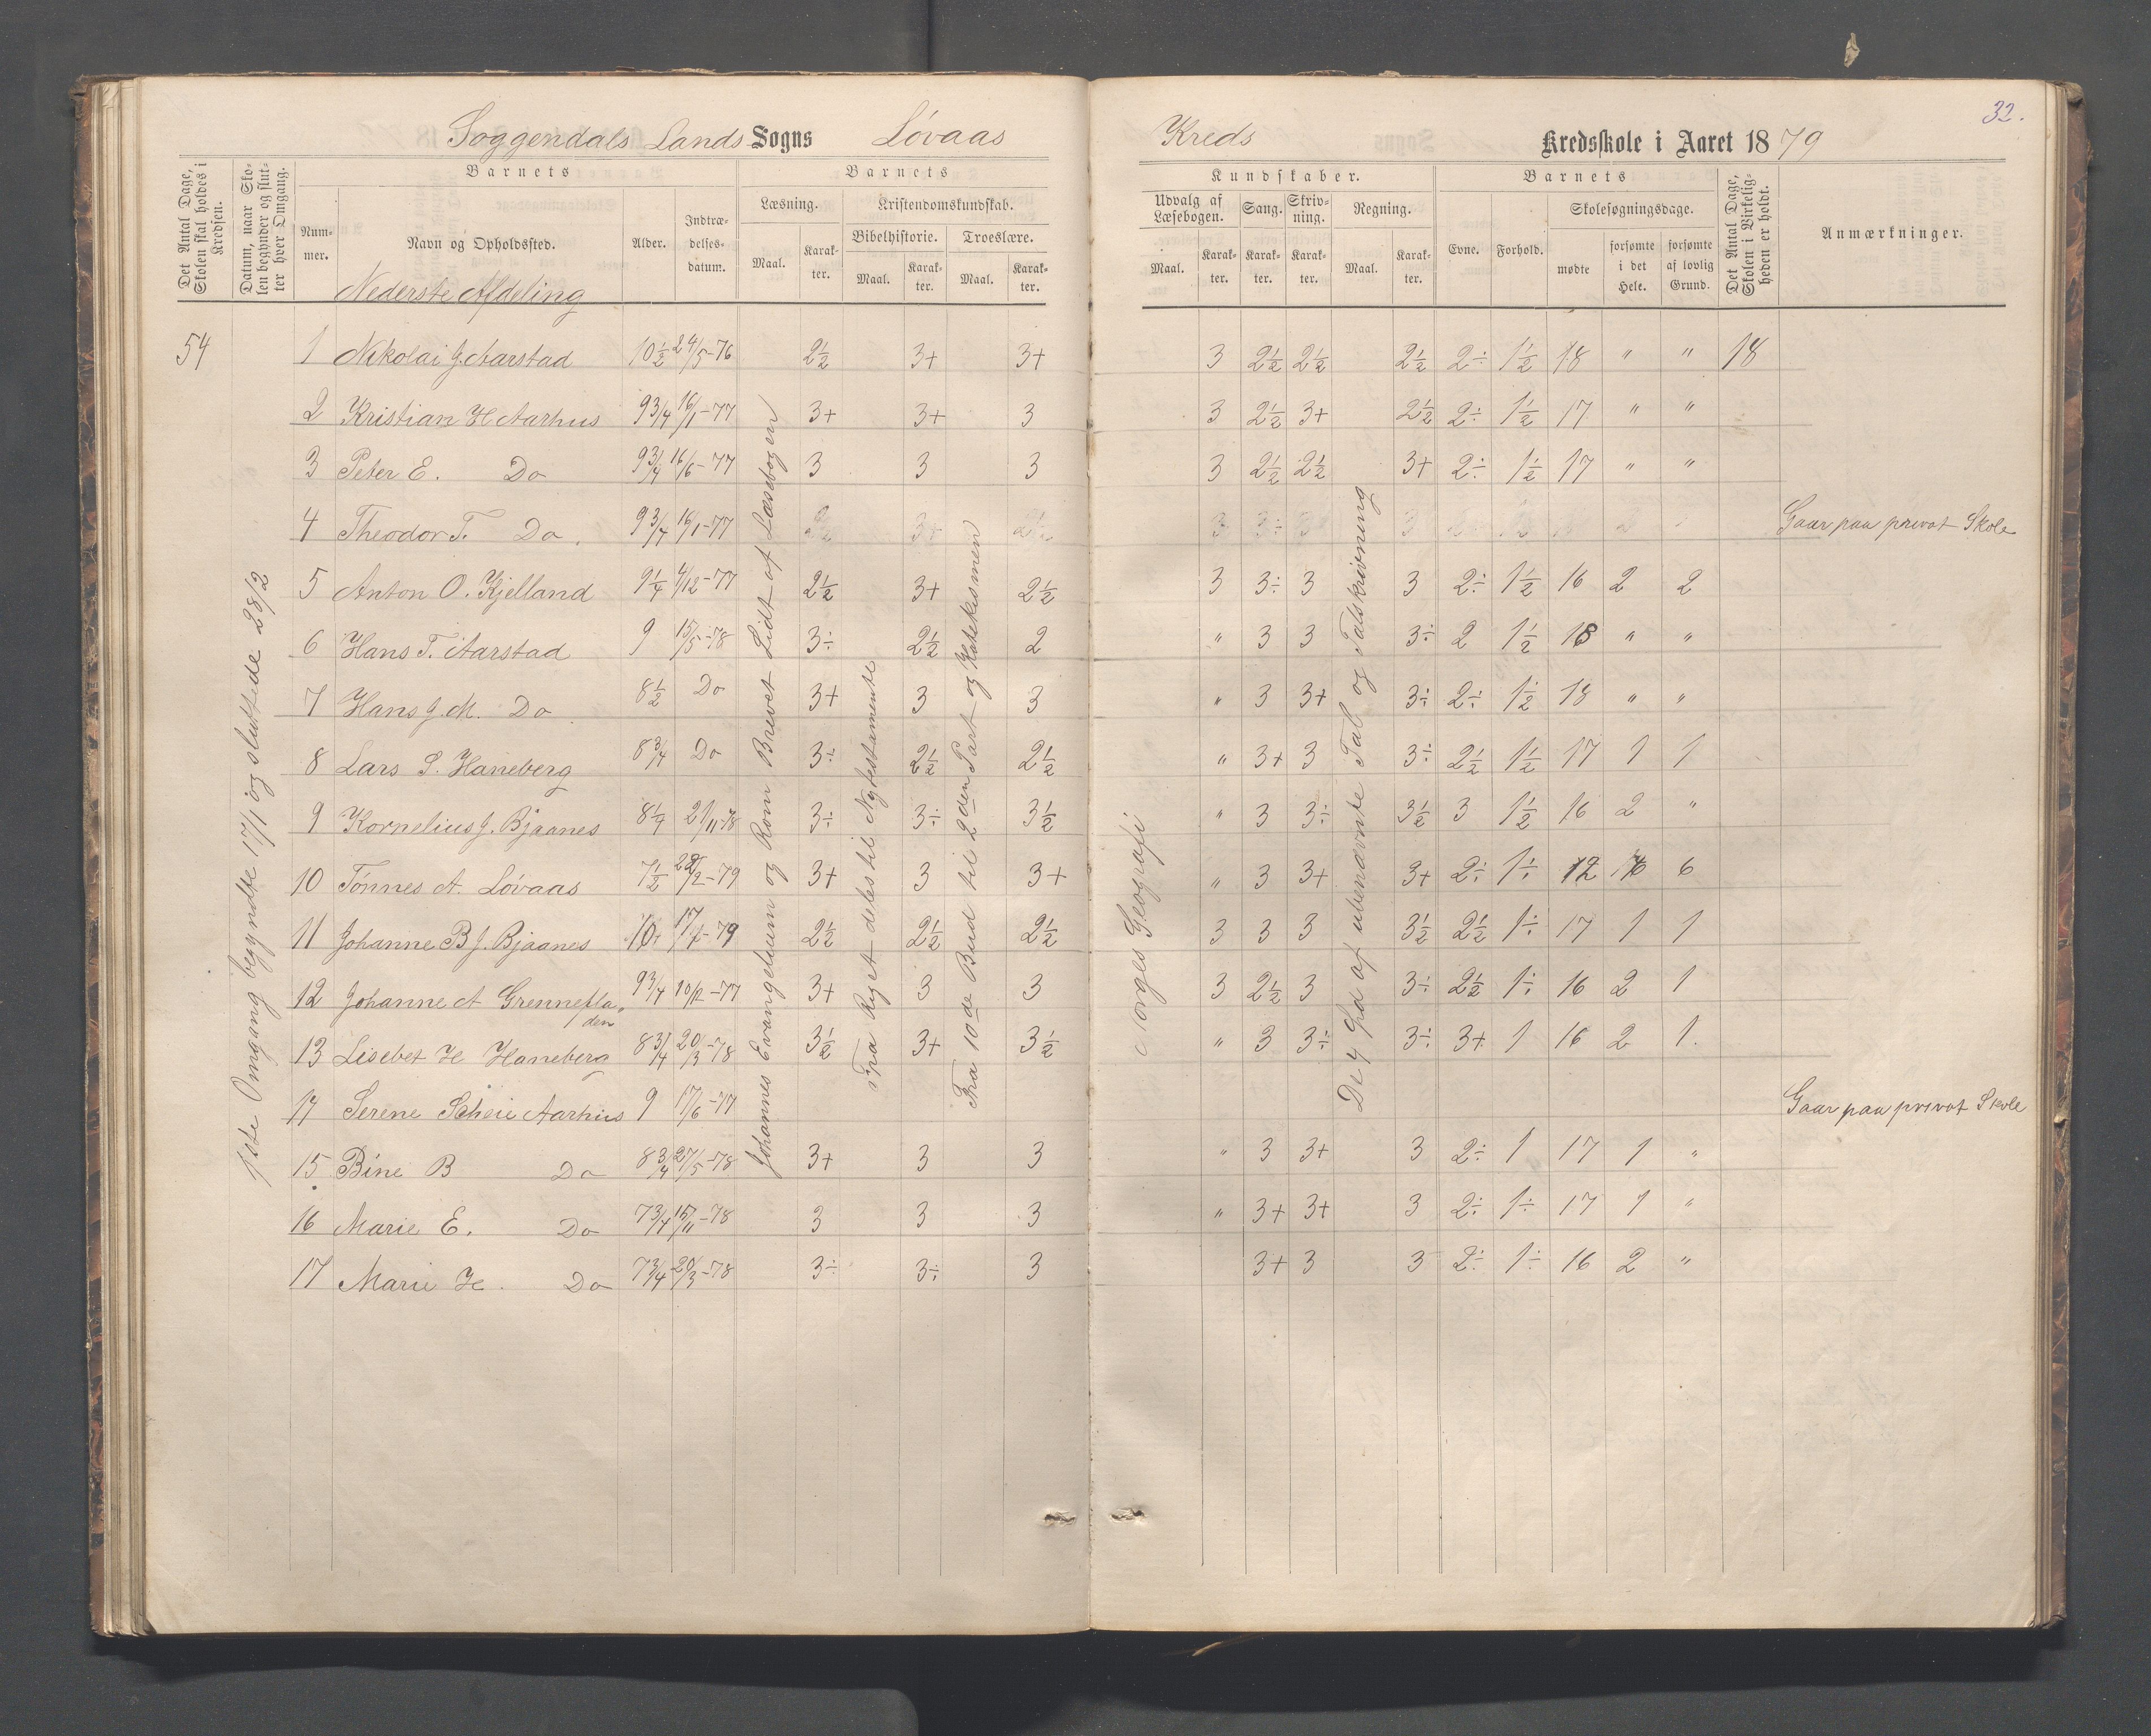 32.
Soggendals Lands Sogns Lövaas Kreds Kredsskole i Aaret 1879
Det Antal Dage, Skolen skal holdes i Kredsen.
Datum, naar Skolen begynder og slutter hver Omgang.
Barnets
Nummer.
Navn og Opholdssted.
Alder.
Indtrædelsesdatum.
Barnets
Læsning.
Maal.
Karakter.
Kristendomskundskab.
Bibelhistorie.
Maal.
Karakter.
Troeslære.
Maal.
Karakter.
Kundskaber.
Udvalg af Læsebogen.
Maal.
Karakter.
Sang.
Karakter.
Skrivning.
Karakter.
Regning.
Maal.
Karakter.
Barnets
Evne.
Forhold.
Skolesøgningsdage.
mødte
forsømte i det Hele.
forsømte af lovlig Grund.
Det Antal Dage, Skolen i Virkeligheden er holdt.
Anmærkninger.
Nederste Afdeling
54 1 Nikolai J. Aarstad 10½ 24/5-76 2½ 3+ 3+ 3 2½ 2½ 2½ 2÷ 1½ 18 " " 18
2 Kristian H Aarhus 9 3/4 16/1-77 3+ 3+ 3 3 2½ 3+ 2½ 2÷ 1½ 17 " "
3 Peter E. Do 9 3/4 16/6-77 3 3 3 3 2½ 2½ 3+ 2÷ 1½ 17 " "
4 Theodor T. Do. 9 3/4 16/1-77 Gaar paa privat Skole
5 Anton O. Kjelland 9 1/4 4/12-77 2½ 3+ 2½ 3 3÷ 3 3 2÷ 1½ 16 2 2
6 Hans T. Aarstad 9 15/5-78 3÷ 2½ 2 " 3 3 3÷ 2 1½ 18 " "
7 Hans J. M. Do 8½ Do 3+ 3 3 " 3 3+ 3÷ 2÷ 1½ 18 " "
8 Lars S. Haneberg 8 3/4 Do 3÷ 2½ 2½ " 3+ 3 3÷ 2½ 1½ 17 1 1
9 Kornelius J. Bjaanes 8 1/4 21/11-78 3÷ 3÷ 3½ " 3 3÷ 3½ 3 1½ 16 2 "
10 Tönnes A. Lövaas 7½ 28/2-79 3+ 3 3+ " 3 3+ 3+ 2÷ 1÷ 12 6 6
11 Johanne B J. Bjaanes 10 17/1-79 2½ 2½ 2½ 3 3 3 3½ 2½ 1÷ 17 1 1
12 Johanne A Grennefladen 9 3/4 10/12-77 3+ 3 3 3 2½ 3 3÷ 2½ 1÷ 16 2 1
13 Lisebet H Haneberg 8 3/4 20/3-78 3½ 3+ 3½ " 3 3÷ 3÷ 3+ 1 16 2 1.
14 Serene Scheie Aarhus 9 17/6-77 Gaar paa privat Skole
15 Bine B Do 8 3/4 27/5-78 3+ 3 3 " 3 3+ 3 2÷ 1 17 1 "
16 Marie E. Do 7 3/4 15/11-78 3 3 3 " 3+ 3+ 3 2÷ 1÷ 17 1 "
17 Marie H. Do 7 3/4 20/3-78 3÷ 3÷ 3 3+ 3 3 2÷ 1÷ 16 2 "
1ste Omgang begyndte 17/1 og sluttede 28/2
Johannes Evangelium og Rom Brevet Lidt af Læsebogen
Fra Riget deles til Nytestamente
Fra 10de Bud til 2den Part og Katekesmen
Norges Geografi
De 4 fra af ubenævnte Tal og Talskrivning